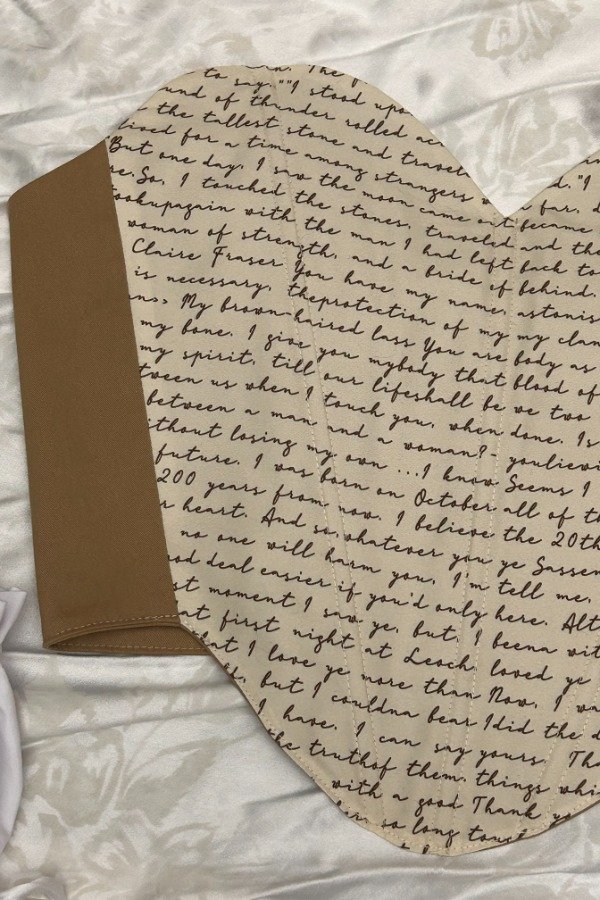 The
to say, ""I stood upo
und of thunder rolled ac
the tallest stone and travel
lived for a time among strangers far, d." "I
But one day, I saw the moon came out became
e. So, I touched the stones, traveled and the
tookupagain with the man I had left back to
woman of strength, and a bride of behind.
Claire Fraser You have my name, astonis
is necessary, theprotection of my my clan
ns. My brown-haired lass You are body as
my bone. I give you mybody that blood of
my spirit, till our lifeshall be we two
tween us when I touch you, when done. Is
between a man and a woman?- youliewi
ithout losing my own ...I know Seems I
future. I was born on October all of th
200 years from now. I believe the 20th
r heart. And so, whatever you ye Sassen
no one will harm you, I'm tell me,
ood deal easier if you'd only here. Alt
st moment I saw ye, but, I beena wit
at first night at Leoch, loved ye
hat I love ye more than Now, I wa
but I couldna bear Idid the d
I have, I can say yours. Tha
the truthof them, things whi
with a good Thank yo
so long touc